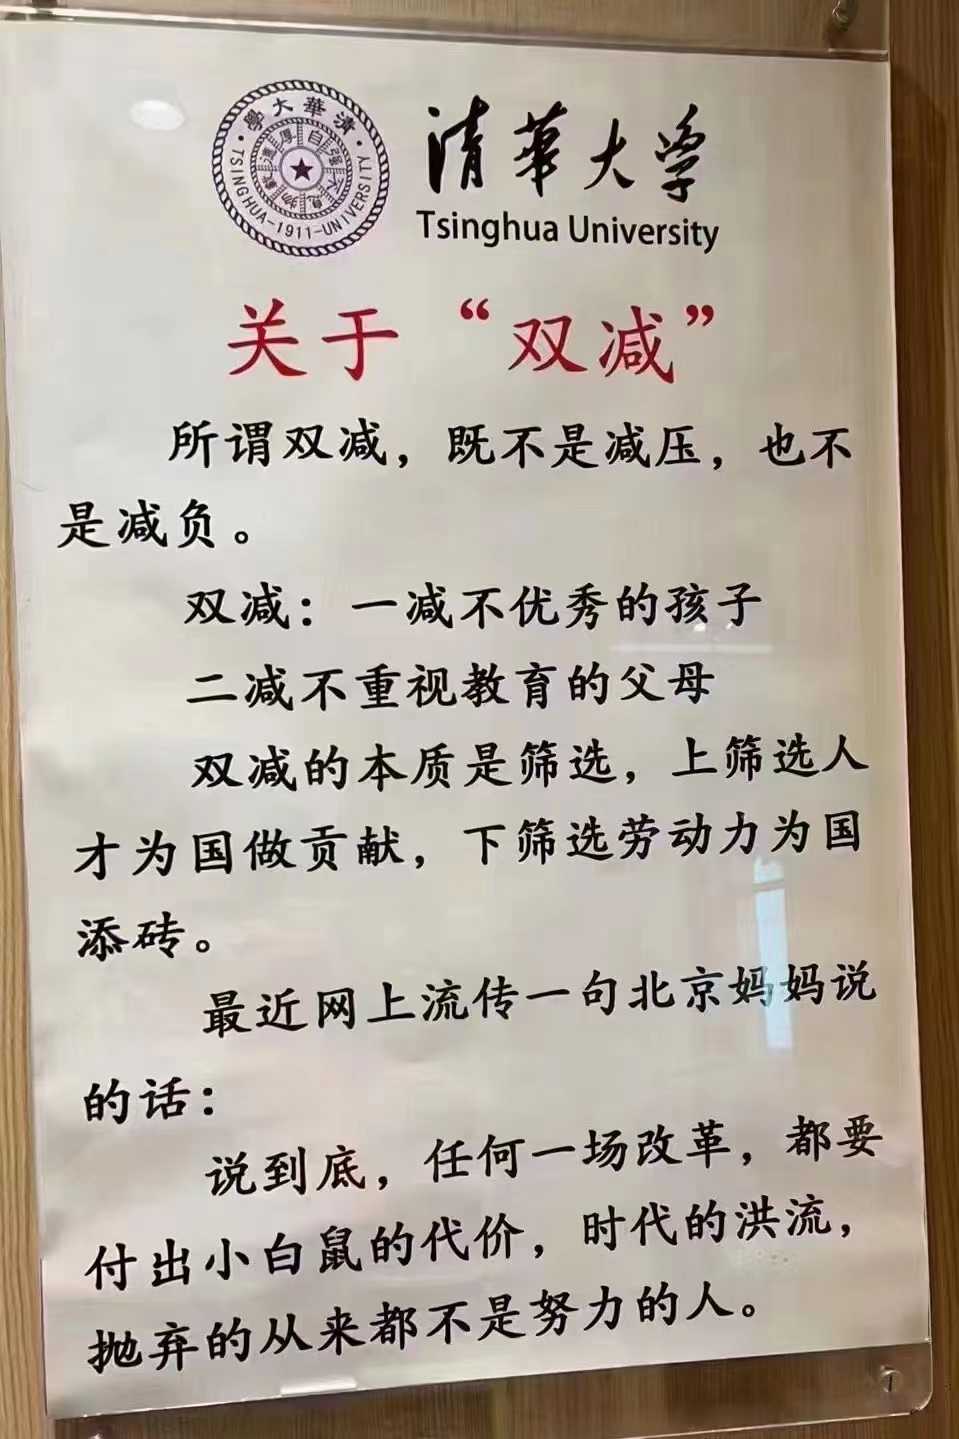 清華大学
Tsinghua University
清華大學
TSINGHUA-1911-UNIVERSITY
自强不息
厚德載物
关于“双减”
所谓双减，既不是减压，也不
是减负。
双减：一减不优秀的孩子
二减不重视教育的父母
双减的本质是筛选，上筛选人
才为国做贡献，下筛选劳动力为国
添砖。
最近网上流传一句北京妈妈说
的话：
说到底，任何一场改革，都要
付出小白鼠的代价，时代的洪流，
抛弃的从来都不是努力的人。